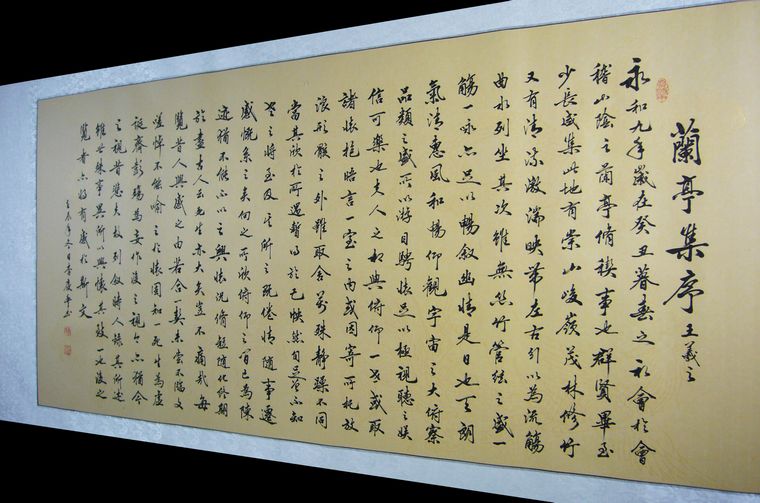 蘭亭集序 王羲之
永和九年歲在癸丑暮春之初會於會
稽山陰之蘭亭脩稧事也群賢畢至
少長咸集此地有崇山峻嶺茂林修竹
又有清流激湍映帶左右引以為流觴
曲水列坐其次雖無絲竹管弦之盛一
觴一詠亦足以暢敘幽情是日也天朗
氣清惠風和暢仰觀宇宙之大俯察
品類之盛所以游目騁懷足以極視聽之娛
信可樂也夫人之相與俯仰一世或取
諸懷抱晤言一室之內或因寄所托放
浪形骸之外雖取舍萬殊靜躁不同
當其欣於所遇暫得於己怏然自足曾不知
老之將至及其所之既倦情隨事遷
感慨系之矣向之所欣俯仰之間已為陳
迹猶不能不以之興懷況脩短隨化終期
於盡古人云死生亦大矣豈不痛哉每
覽昔人興感之由若合一契未嘗不臨文
嗟悼不能喻之於懷固知一死生為虛
誕齊彭殤為妄作後之視今亦猶今
之視昔悲夫故列敘時人錄其所述
雖世殊事異所以興懷其致一也後之
覽者亦將有感於斯文
壬辰年冬日李慶平書